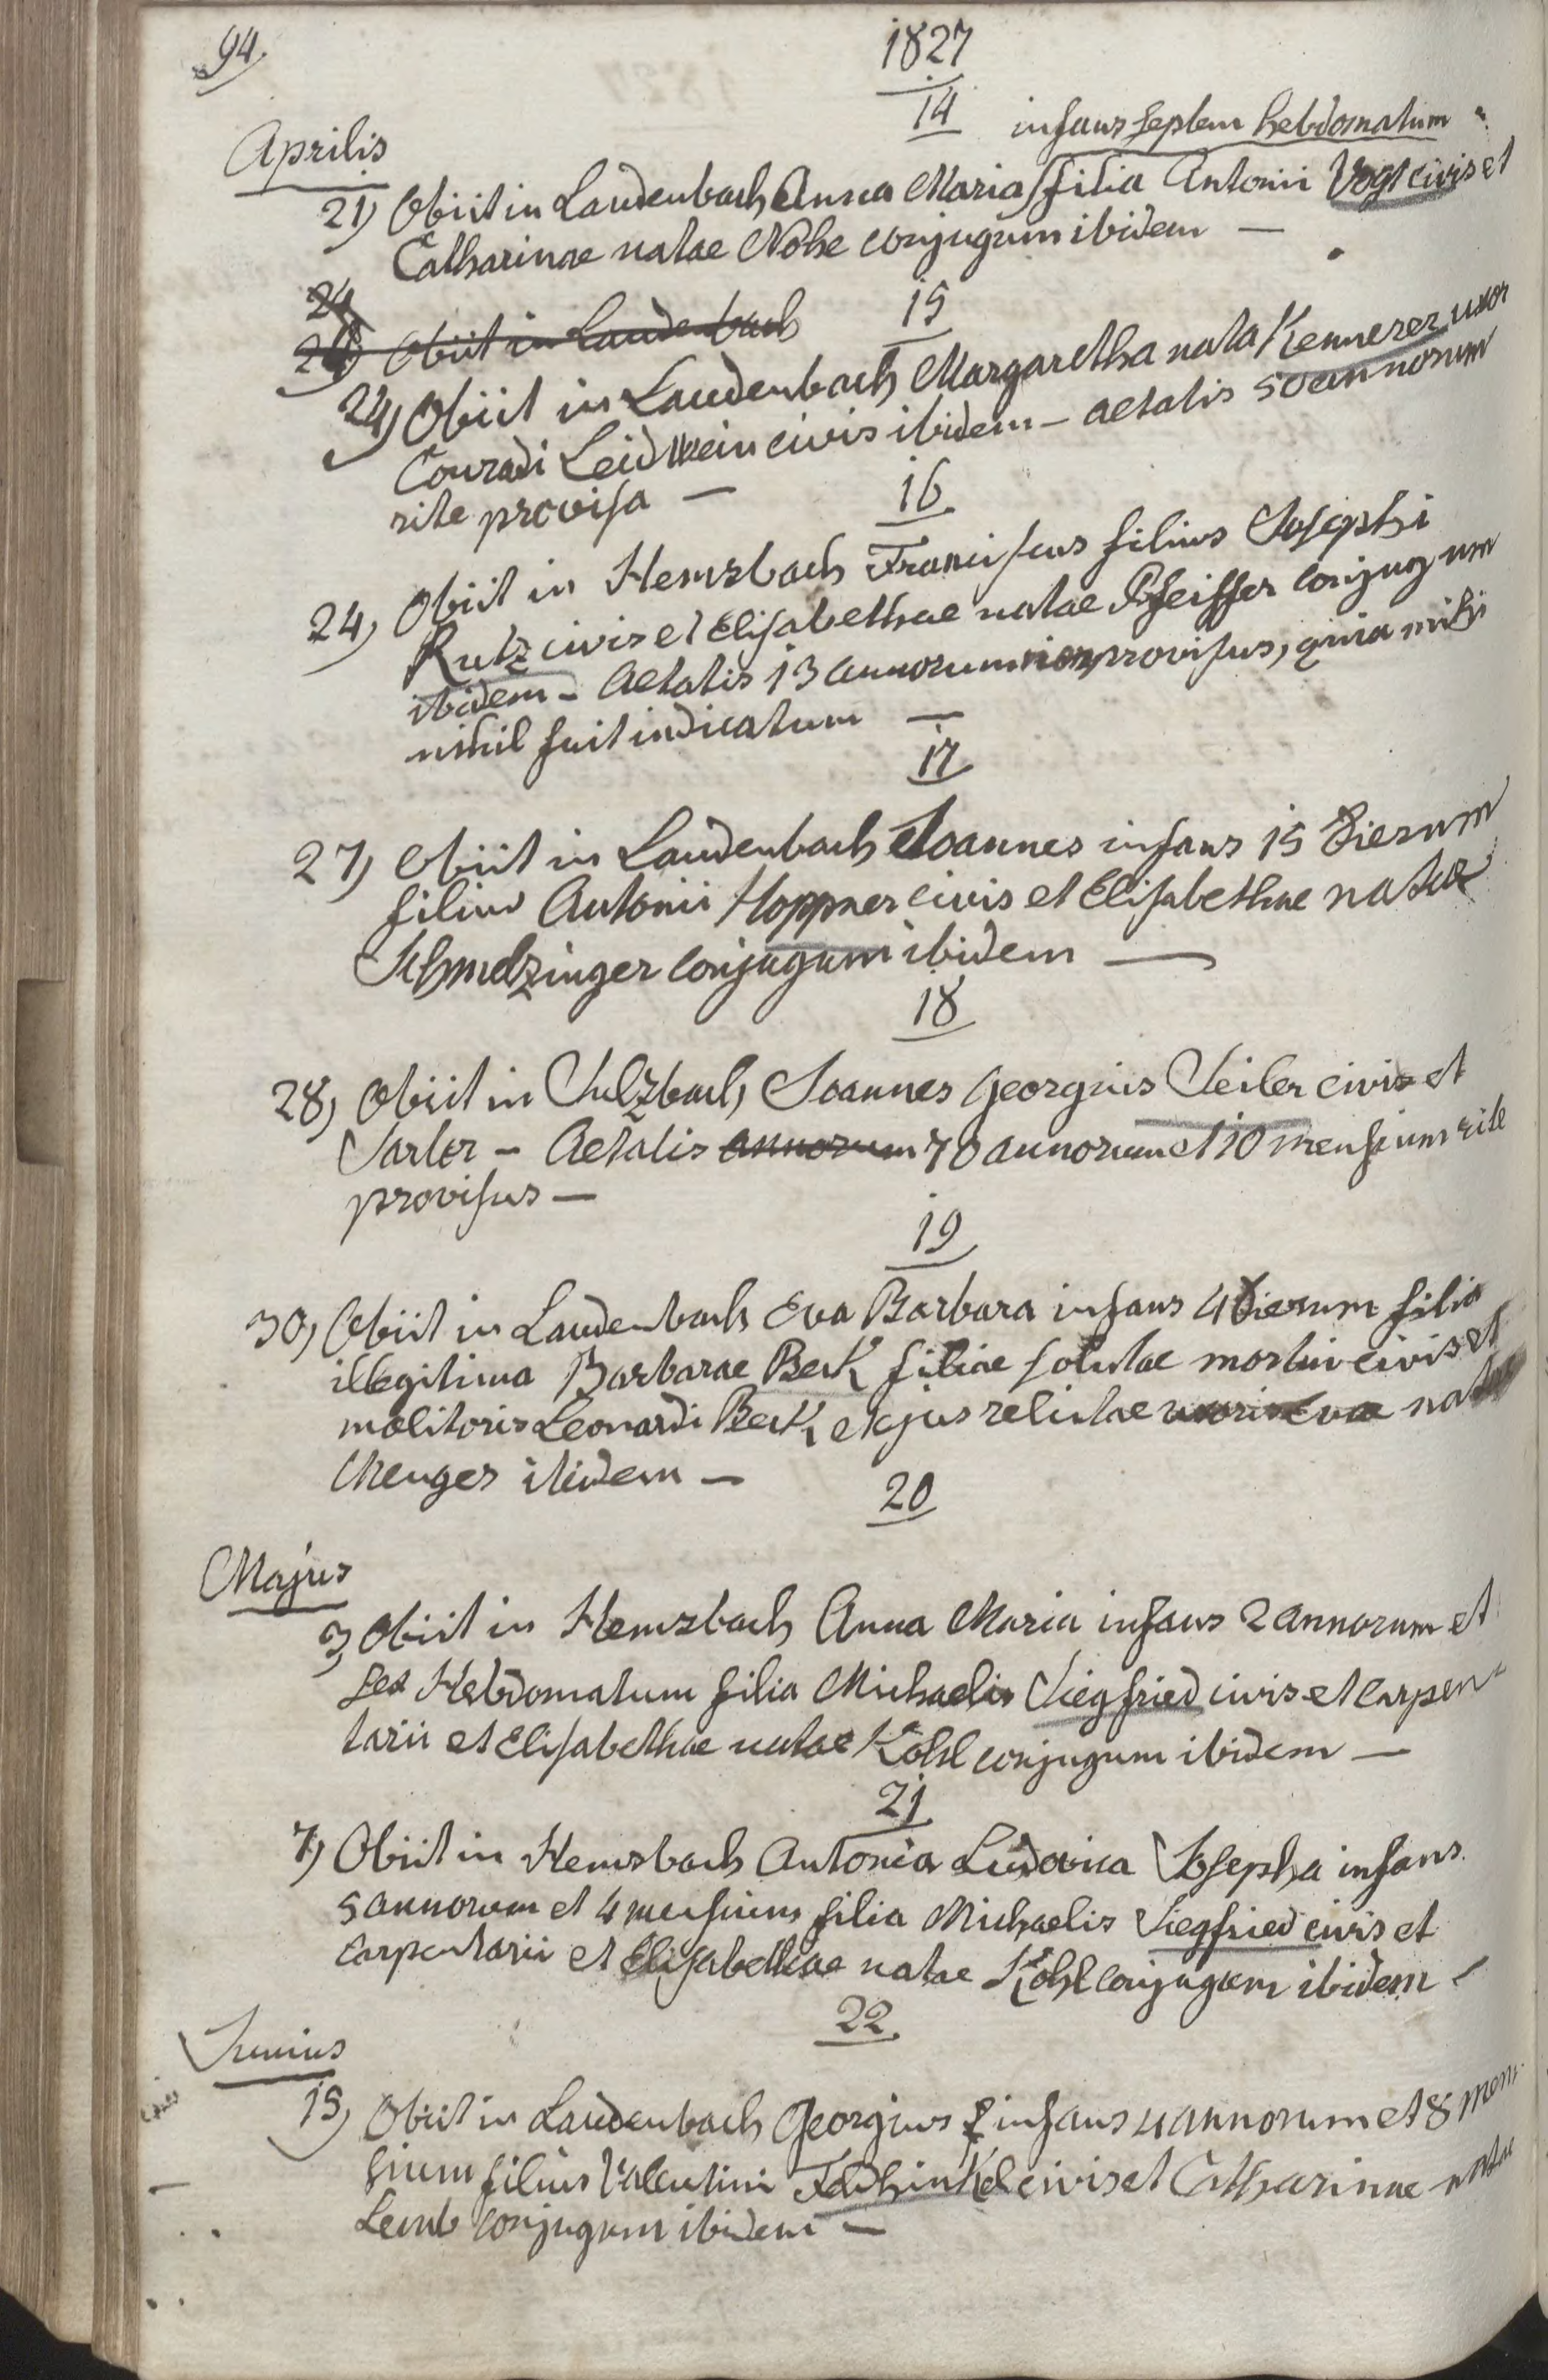 94.
1827
14
infans septem hebdomatum
Aprilis
21) Obiit in Laudenbach Anna Maria filia Antonii Vogt civis et
Catharinae natae Nohe conjugum ibidem —
24
24) Obiit in Laudenbach
15
24) Obiit in Laudenbach Margaretha nata Kemmerer uxor
Conradi Leidwein civis ibidem – aetatis 50 annorum
rite provisa —
16
24) Obiit in Hemsbach Franciscus filius Josephi
Rutz civis et Elisabethae natae Pfeiffer conjugum
ibidem – Aetatis 13 annorum non provisus, quia mihi
nihil fuit indicatum —
17
27) Obiit in Laudenbach Joannes infans 15 dierum
filius Antonii Hoppner civis et Elisabethae natae
Schmelzinger conjugum ibidem —
18
28) Obiit in Sulzbach Joannes Georgius Seiler civis et
Sartor – Aetatis annorum 70 annorum et 10 mensium rite
provisus —
19
30) Obiit in Laudenbach Eva Barbara infans 4 dierum filia
illegitima Barbarae Beck filiae solutae mortui civis et
molitoris Leonardi Beck, ejus relictae uxoris Evae natae
Menger ibidem —
20
Majus
3) Obiit in Hemsbach Anna Maria infans 2 annorum et
sex Hebdomatum filia Michaelis Siegfried civis et carpen-
tarii et Elisabethae natae Kohl conjugum ibidem —
21
7) Obiit in Hemsbach Antonia Ludovica Josepha infans
5 annorum et 4 mensium filia Michaelis Siegfried civis et
carpentarii et Elisabethae natae Kohl conjugum ibidem –
22
Junius
15) Obiit in Laudenbach Georgius infans 4 annorum et 8 men-
sium filius Valentini Feldhinkel civis et Catharinae natae
Lemb conjugum ibidem —